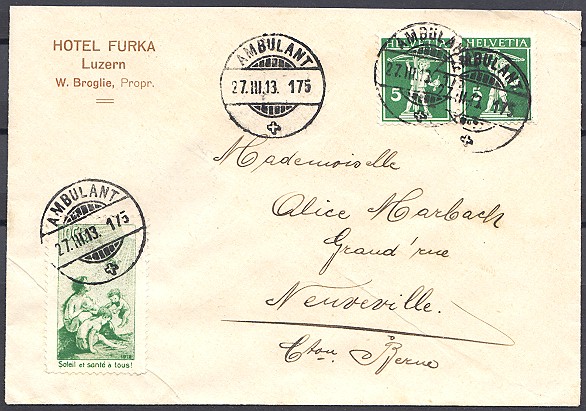 HOTEL FURKA
Luzern
W. Broglie, Propr.
AMBULANT
27.III.13. 175
HELVETIA
HELVETIA
5
5
AMBULANT
27.III.13. 175
AMBULANT
27.III.13. 175
Mademoiselle
Alice Marbach
Grand'rue
Neuveville.
Cton Berne
AMBULANT
27.III.13. 175
1912
Soleil et santé à tous!